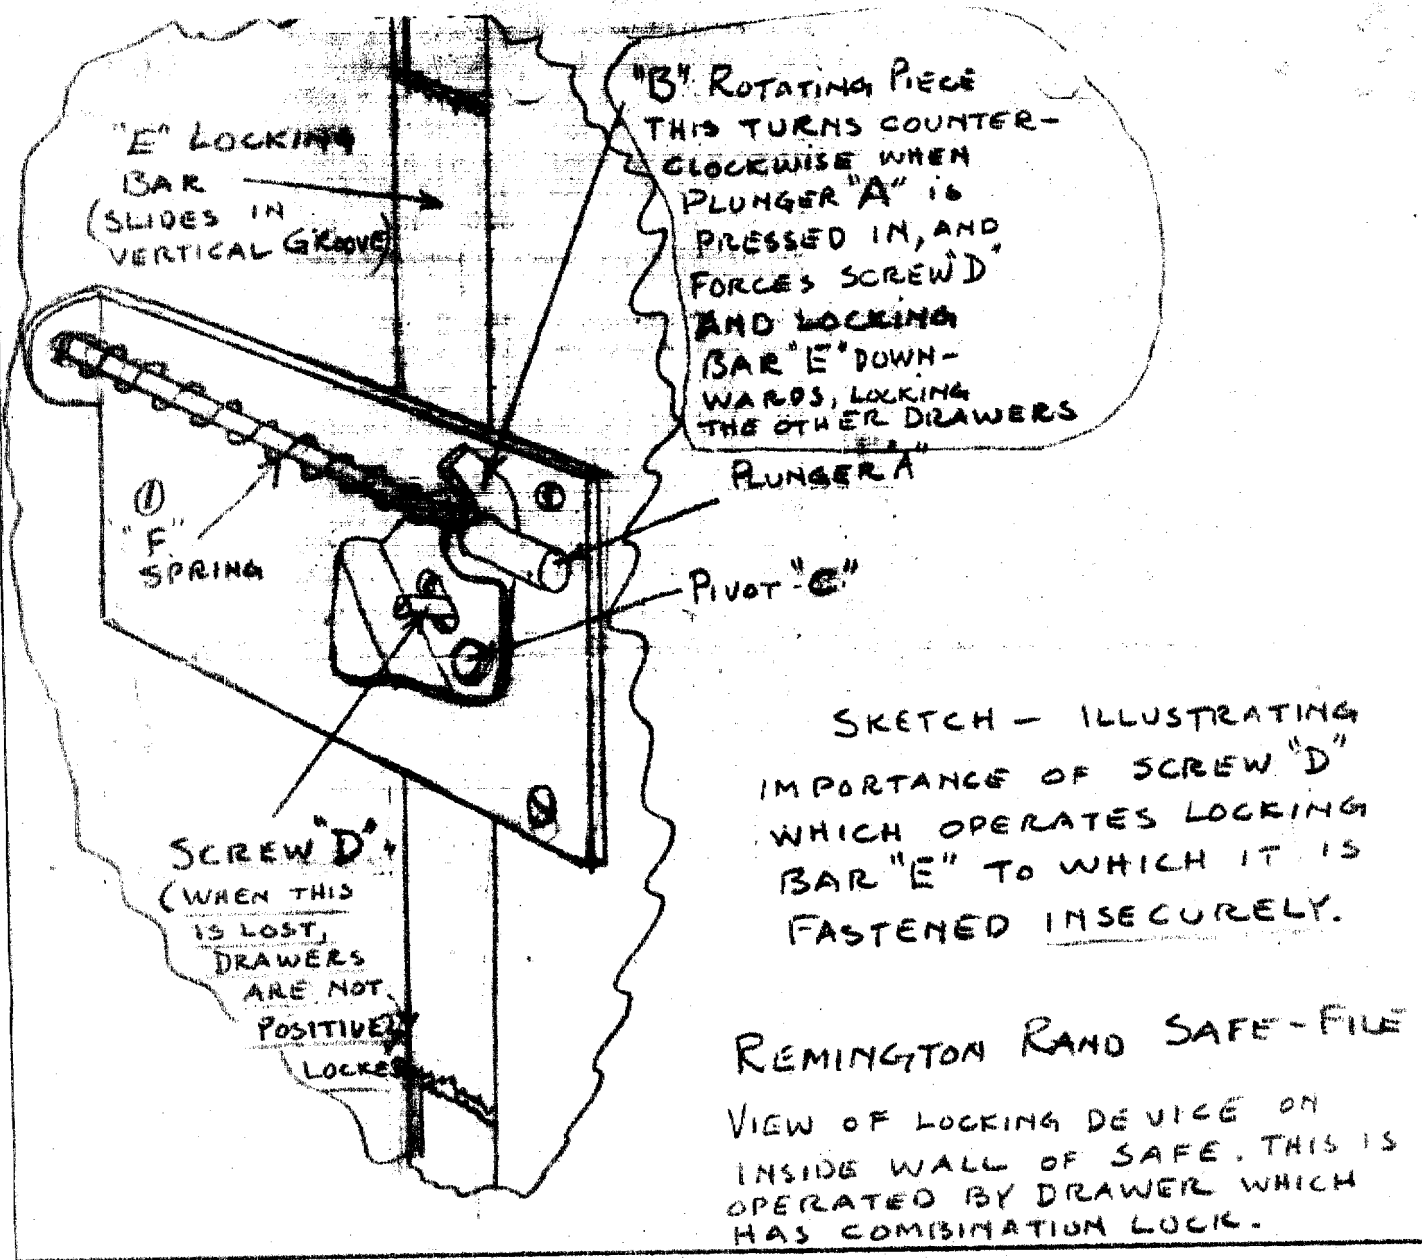 "E" LOCKING
BAR
(SLIDES IN
VERTICAL GROOVE)
"B" ROTATING PIECE
THIS TURNS COUNTER-
CLOCKWISE WHEN
PLUNGER "A" IS
PRESSED IN, AND
FORCES SCREW "D"
AND LOCKING
BAR "E" DOWN-
WARDS, LOCKING
THE OTHER DRAWERS
PLUNGER "A"
"F"
SPRING
PIVOT "C"
SCREW "D"
(WHEN THIS
IS LOST,
DRAWERS
ARE NOT
POSITIVELY
LOCKED
SKETCH – ILLUSTRATING
IMPORTANCE OF SCREW "D"
WHICH OPERATES LOCKING
BAR "E" TO WHICH IT IS
FASTENED INSECURELY.
REMINGTON RAND SAFE-FILE
VIEW OF LOCKING DEVICE ON
INSIDE WALL OF SAFE. THIS IS
OPERATED BY DRAWER WHICH
HAS COMBINATION LOCK.